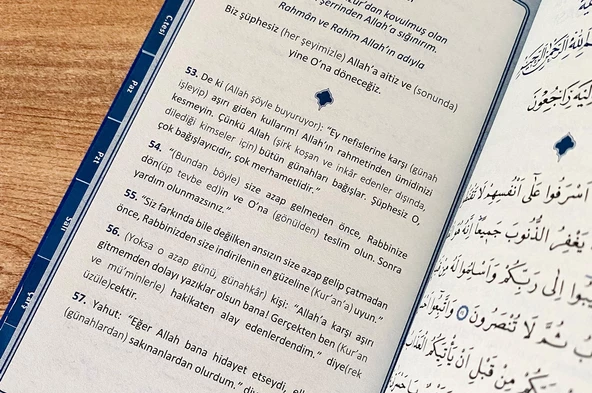 C.tesi
Paz
Pzt
Salı
Çarş
kovulmuş olan
şerrinden Allah'a sığınırım.
Rahmân ve Rahîm Allah'ın adıyla
Biz şüphesiz (her şeyimizle) Allah'a aitiz ve (sonunda)
yine O'na döneceğiz.
53. De ki (Allah şöyle buyuruyor): "Ey nefislerine karşı (günah
işleyip) aşırı giden kullarım! Allah'ın rahmetinden ümidinizi
kesmeyin. Çünkü Allah (şirk koşan ve inkâr edenler dışında,
dilediği kimseler için) bütün günahları bağışlar. Şüphesiz O,
çok bağışlayıcıdır, çok merhametlidir."
54. "(Bundan böyle) size azap gelmeden önce, Rabbinize
dön(üp tevbe ed)in ve O'na (gönülden) teslim olun. Sonra
yardım olunmazsınız."
55. "Siz farkında bile değilken ansızın size azap gelip çatmadan
önce, Rabbinizden size indirilenin en güzeline (Kur'an'a) uyun."
56. (Yoksa o azap günü, günahkâr) kişi: "Allah'a karşı aşırı
gitmemden dolayı yazıklar olsun bana! Gerçekten ben (Kur'an
ve mü'minlerle) hakikaten alay edenlerdendim." diye(rek
üzüle)cektir.
57. Yahut: "Eğer Allah bana hidayet etseydi,
(günahlardan) sakınanlardan olurdum."
اَسْرَفُوا عَلٰٓى اَنْفُسِهِمْ لَا
يَغْفِرُ الذُّنُوبَ جَم۪يعًاۜ اِنَّهُ
اِلٰى رَبِّكُمْ وَاَسْلِمُوا لَهُ
ثُمَّ لَا تُنْصَرُونَ
مِنْ قَبْلِ اَنْ يَأْتِيَكُمُ الْعَذَابُ